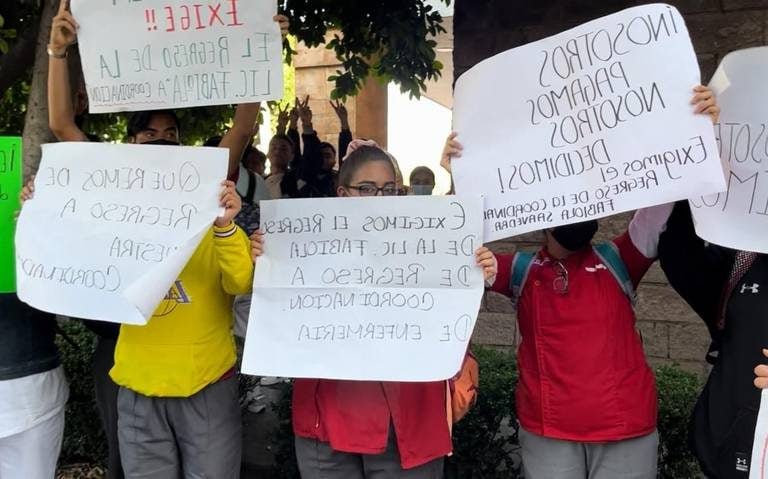 EXIGE!!
EL REGRESO DE LA
LIC. FABIOLA "A COORDINACION
QUEREMOS DE
REGRESO A
ESTRA
COORDINAD
EXIGIMOS El REGRESO
DE LA LIC. FABIOLA
DE REGRESO A
COORDINACION.
DE ENFERMERIA
¡NOSOTROS
PAGAMOS
NOSOTROS
DECIDIMOS!
EXigimos el
REGRESO DE LA COORDINA
FABIOLA SAAVEDRA